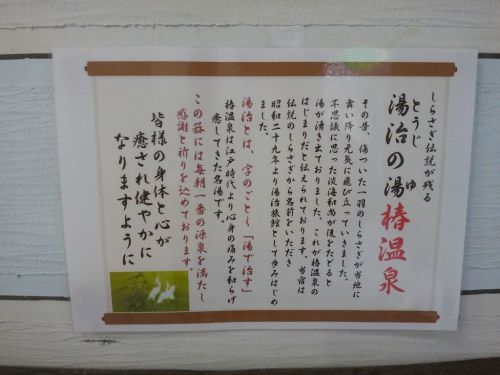 しらさぎ伝説が残る
とうじ ゆ
湯治の湯 椿温泉
その昔、傷ついた一羽のしらさぎが当地に
舞い降り元気に飛び立っていきました。
不思議に思った淡海和尚が後をたどると
湯が湧き出ておりました。これが椿温泉の
はじまりだと伝えられております。当宿は
伝説のしらさぎから名前をいただき
昭和二十九年より湯治旅館として歩みはじめ
ました。
湯治とは、字のごとく「湯で治す」
椿温泉は江戸時代より心身の痛みを和らげ
癒してきた名湯です。
この器には毎朝一番の源泉を満たし
感謝と祈りを込めております。
皆様の身体と心が
癒され健やかに
なりますように